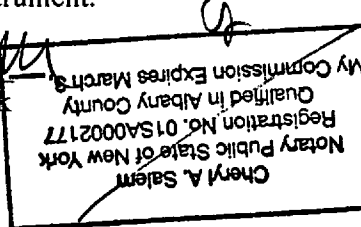 trument.
Cheryl A. Salem
Notary Public State of New York
Registration No. 01SA0002177
Qualified in Albany County
My Commission Expires March